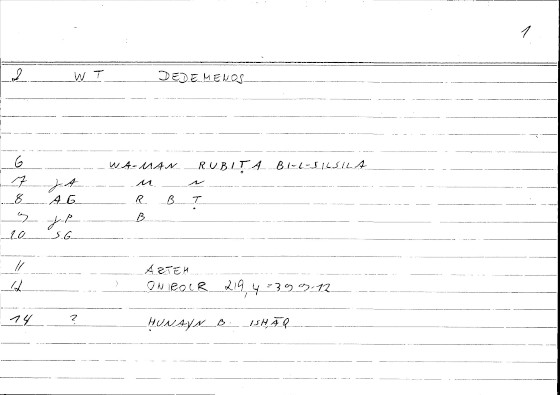 1
2 WT DEDEMENOS
6 WA-MAN RUBIṬA BI-L-SILSILA
7 JA M N
8 AG R B Ṭ
9 JP B
10 SG
11 ARTEM
12 ONIROCR 219,4 = 399-12
14 ? ḤUNAYN B. ISḤĀQ